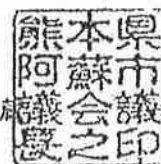 熊本県
阿蘇市
議会議
長之印